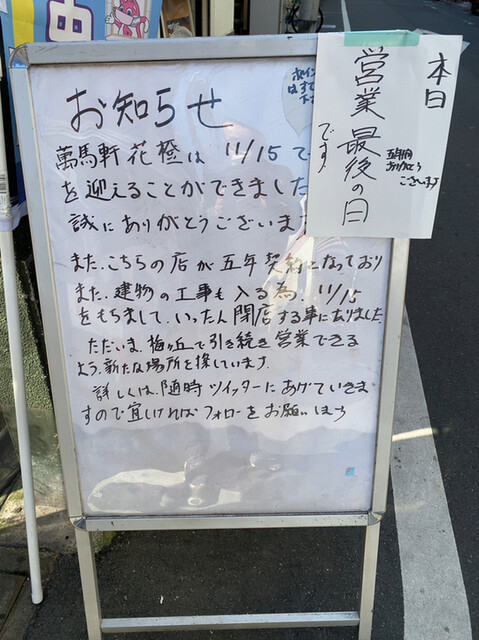 中
お知らせ
萬馬軒 花橙は 11/15で
を迎えることができました
誠にありがとうございます
また、こちらの店が五年契約となっており
また、建物の工事も入る為、11/15
をもちまして、いったん閉店する事になりました
ただいま、梅ヶ丘で引き続き営業できる
よう、新たな場所を探しています。
詳しくは、随時ツイッターにあげていきま
すので宜しければフォローをお願いします
本日
営業最後の日
です
五年間
ありがとう
ございます